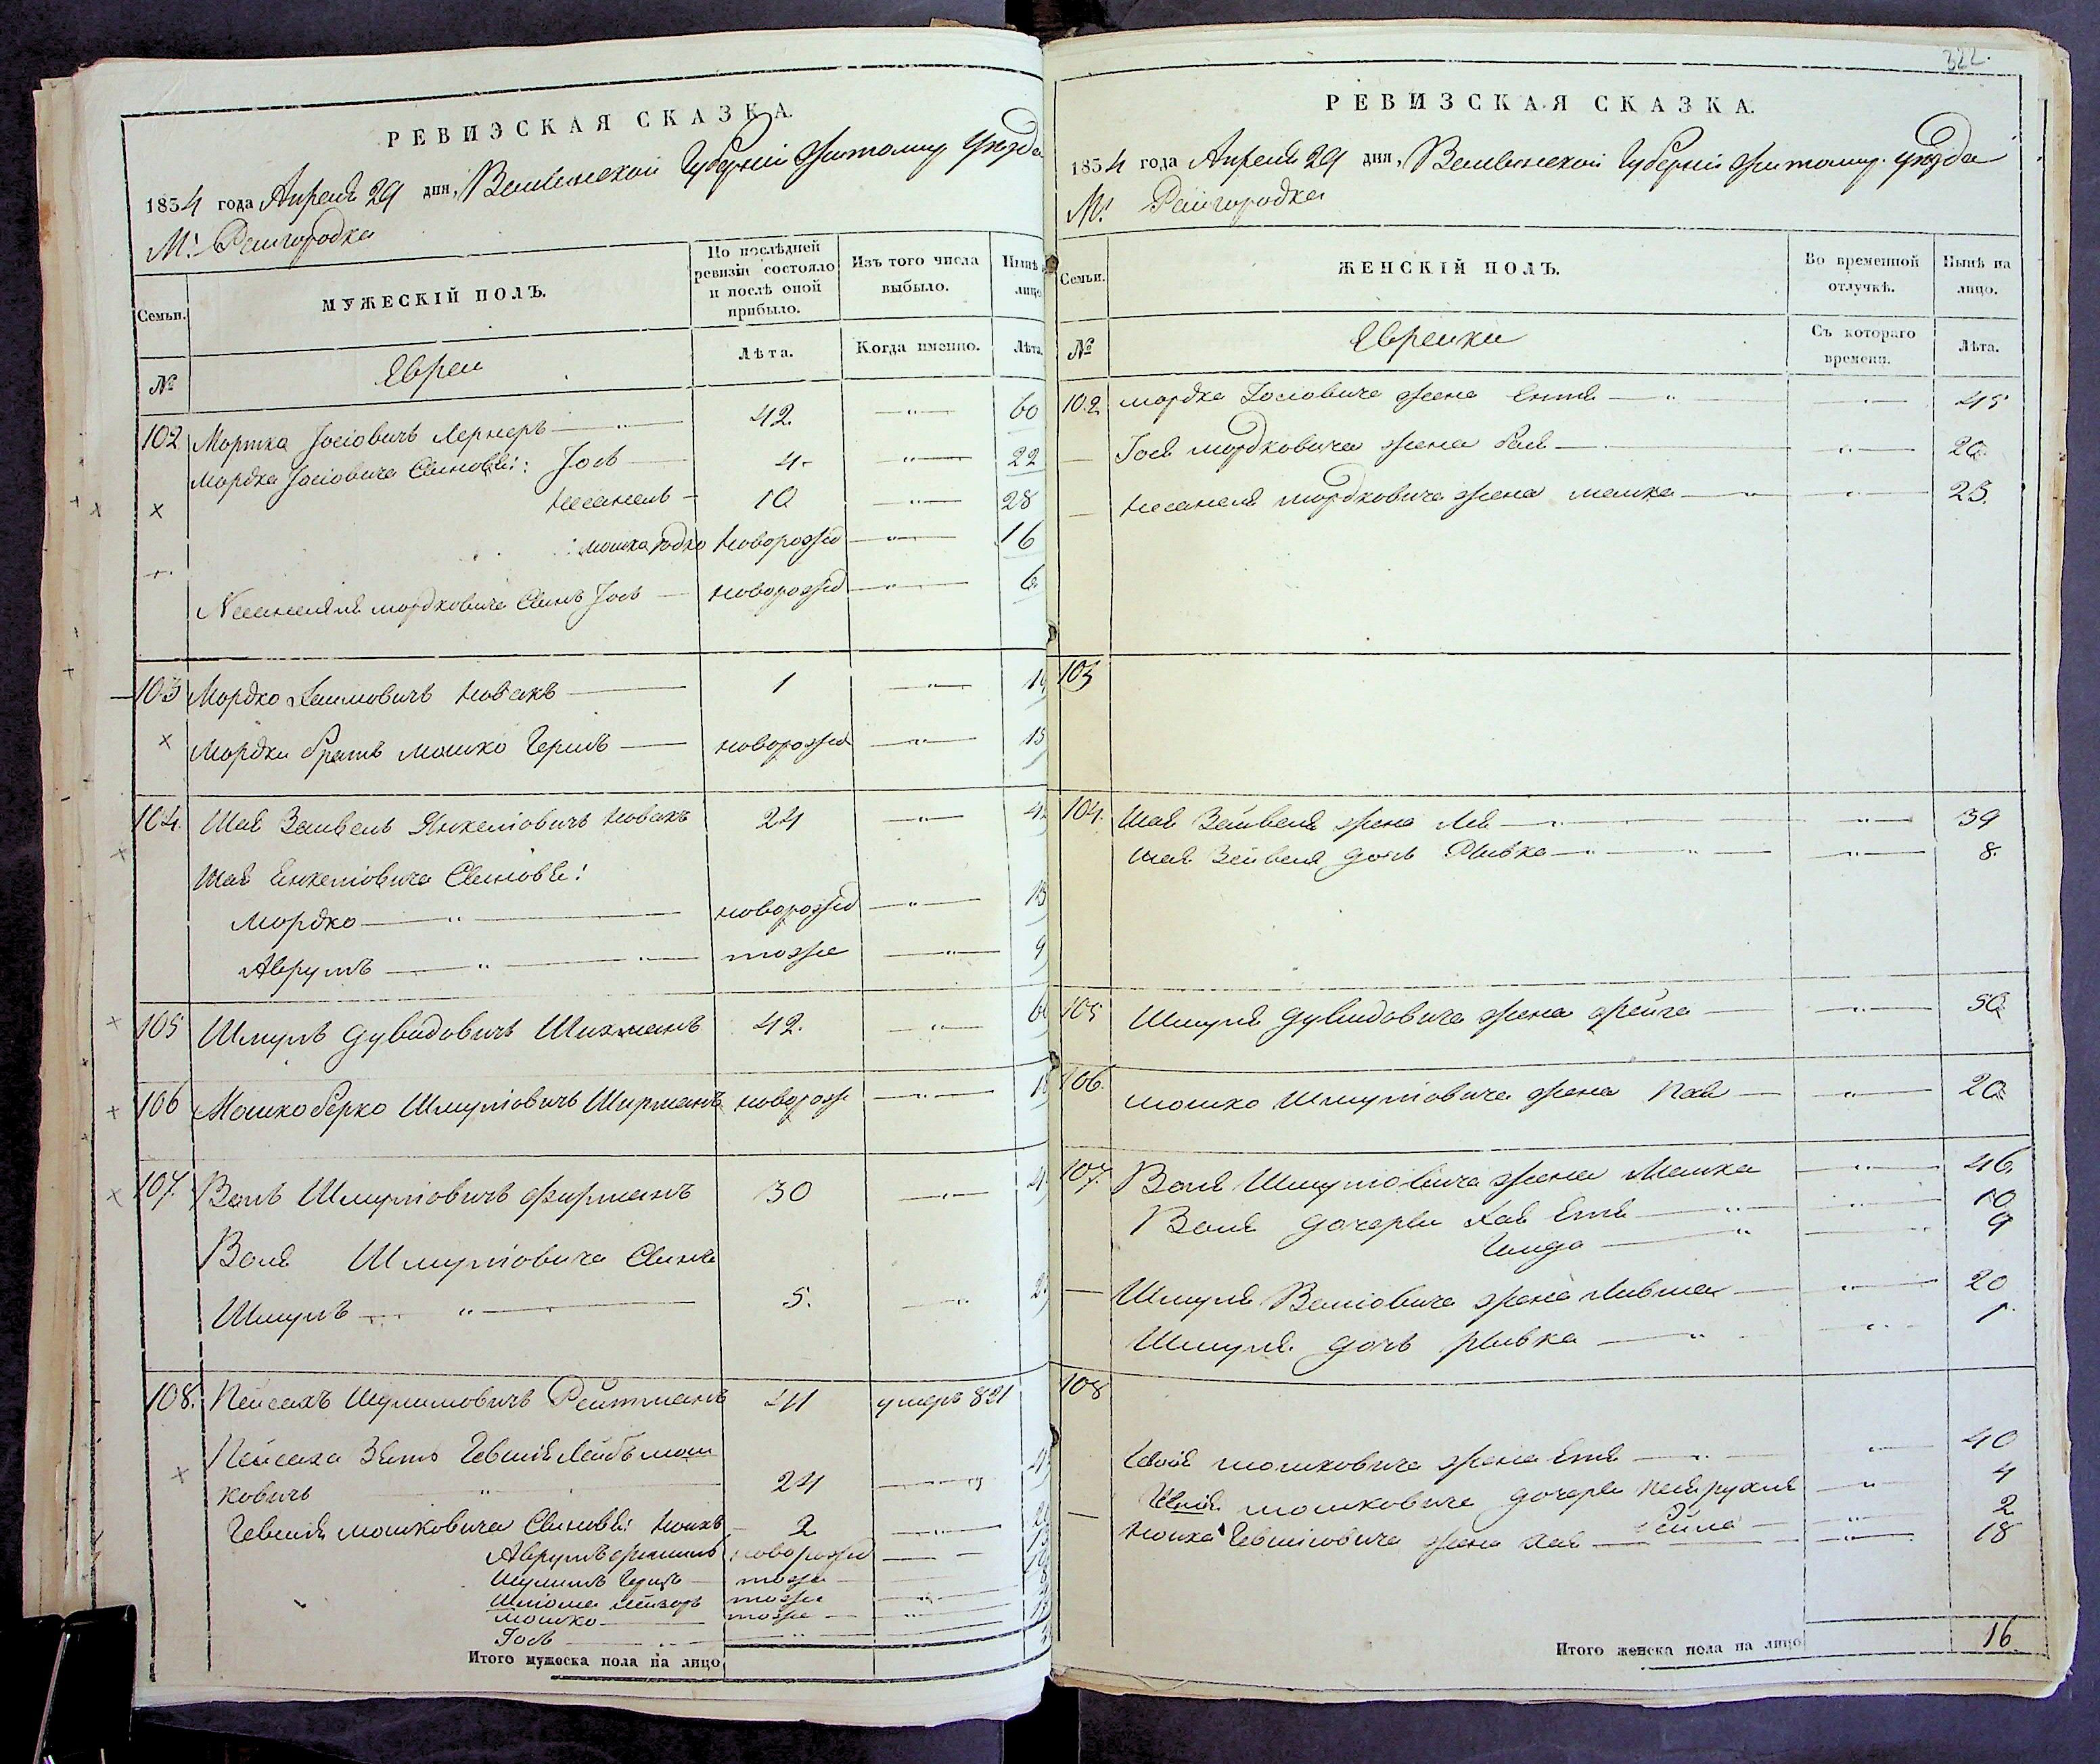 РЕВИЗСКАЯ СКАЗКА.
1854 года Апреля 29 дня, Волынской Губерніи Житомир Уезда
М: Райгородка
Семьи.
МУЖЕСКІЙ ПОЛЪ.
По послѣдней ревизіи состояло и послѣ оной прибыло.
Изъ того числа выбыло.
Нынѣ на лицо
№
Евреи
Лѣта.
Когда именно.
Лѣта.
102 Мортка Іосіовичъ Лернеръ 42. 60
Мордка Іосіовича Сыновья: Іось 4. 22
Несанель 10 28
мошка Юдко новорожд 16
Несанеля мордковича Сынъ Іось новорожд 6
103 Мордко Хаимовичъ Новакъ 1 19
Мордки братъ мошко Гершъ новорожд 15
104. Шая Зейвель Янкеліовичъ Новакъ 24 4
Шая Енкеліовича Сыновья:
Мордко новорожд 13
Аврумъ тоже 9
105 Шмуль Дувидовичъ Шихманъ 42. 60
106 Мошко Берко Шмуліовичъ Ширманъ новорож 18
107. Воль Шмуліовичъ Фирманъ 30 4
Воля Шмуліовича Сынъ
Шмуль 5. 2
108. Пейсахъ Шулимовичъ Рейтманъ 41 умеръ 821
Пейсаха Зять Евшія Лейбъ мош
ковичъ 24 4
Евшія мошковича Сыновья: Ноихъ 2 20
Аврумъ новорожд
Шулимъ Герцъ тоже
Шліома Лейзоръ тоже
мошко тоже
Іось
Итого мужеска пола на лицо
322.
РЕВИЗСКАЯ СКАЗКА.
1854 года Апреля 29 дня, Волынской Губерніи Житомир. уезда
М: Райгородка
Семьи.
ЖЕНСКІЙ ПОЛЪ.
Во временной отлучкѣ.
Нынѣ на лицо.
№
Еврейки
Съ котораго времени.
Лѣта.
102 мордка Іосіовича жена Ента 45
Іося мордковича жена Рая 20
Несанеля мордковича жена малка 25.
103
104. Шая Зейвеля жена Лея 39
Шая Зейвеля дочь Рывка 8.
105 Шмуля Дувидовича жена Фейга 50
106. мошко Шмуліовича жена 20
107. Воля Шмуліовича жена Малка 46
Воля дочери Хая Етя 10
Гинда 9
Шмуля Воліовича жена Ливша 20
Шмуля дочь рывка 1.
108
Евшія мошковича жена Етя 40
Евшія мошковича дочери 4
Рейла 2
Ноиха Евшіовича жена Хая 18
Итого женска пола на лицо 16